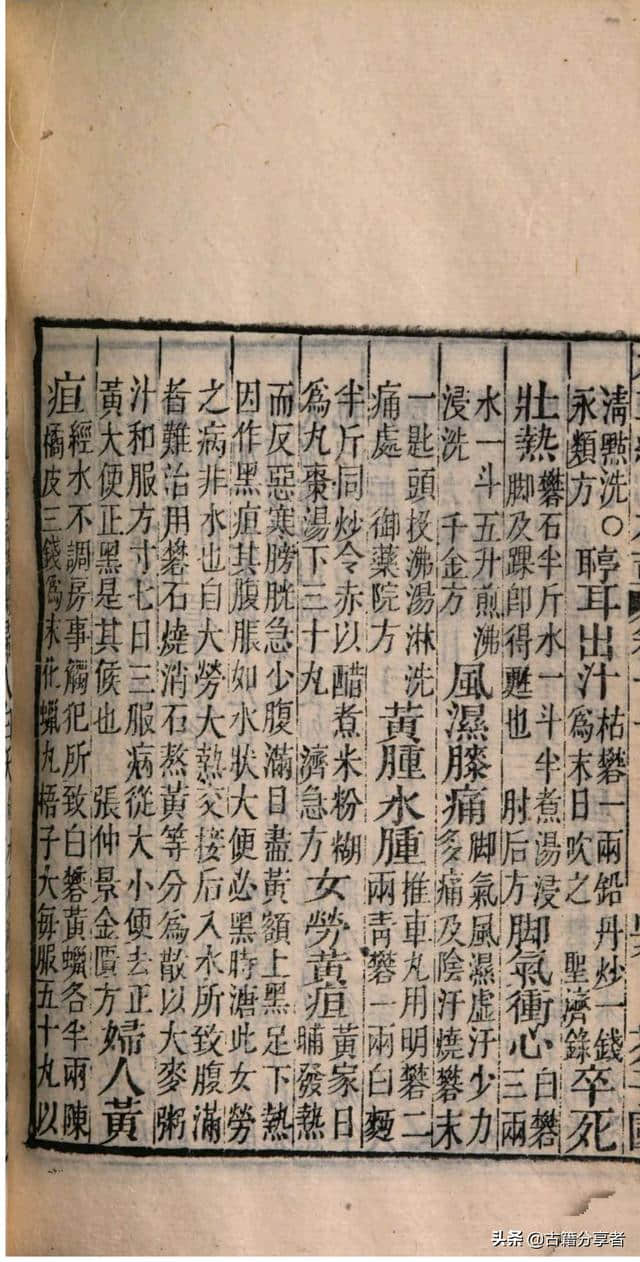 清點洗○
永類方
聤耳出汁
枯礬一兩鉛丹炒一錢
為末日吹之　聖濟錄
卒死
壯熱
礬石半斤水一斗半煮湯浸
脚及踝卽得甦也　肘后方
脚氣衝心
白礬
三兩
水一斗五升煎沸
浸洗　千金方
風濕膝痛
脚氣風濕虛汗少力
多痛及陰汗燒礬末
一匙頭投沸湯淋洗
痛處　御藥院方
黃腫水腫
推車丸用明礬二
兩靑礬一兩白麵
半斤同炒令赤以醋煮米粉糊
為丸棗湯下三十丸　濟急方
女勞黃疸
黃家日
晡發熱
而反惡寒膀胱急少腹滿目盡黃額上黑足下熱
因作黑疸其腹脹如水狀大便必黑時溏此女勞
之病非水也自大勞大熱交接后入水所致腹滿
者難治用礬石燒消石熬黃等分為散以大麥粥
汁和服方寸七日三服病從大小便去正
黃大便正黑是其候也　張仲景金匱方
婦人黃
疸
經水不調房事觸犯所致白礬黃蠟各半兩陳
橘皮三錢為末化蠟丸梧子大每服五十丸以
头条 @古籍分享者